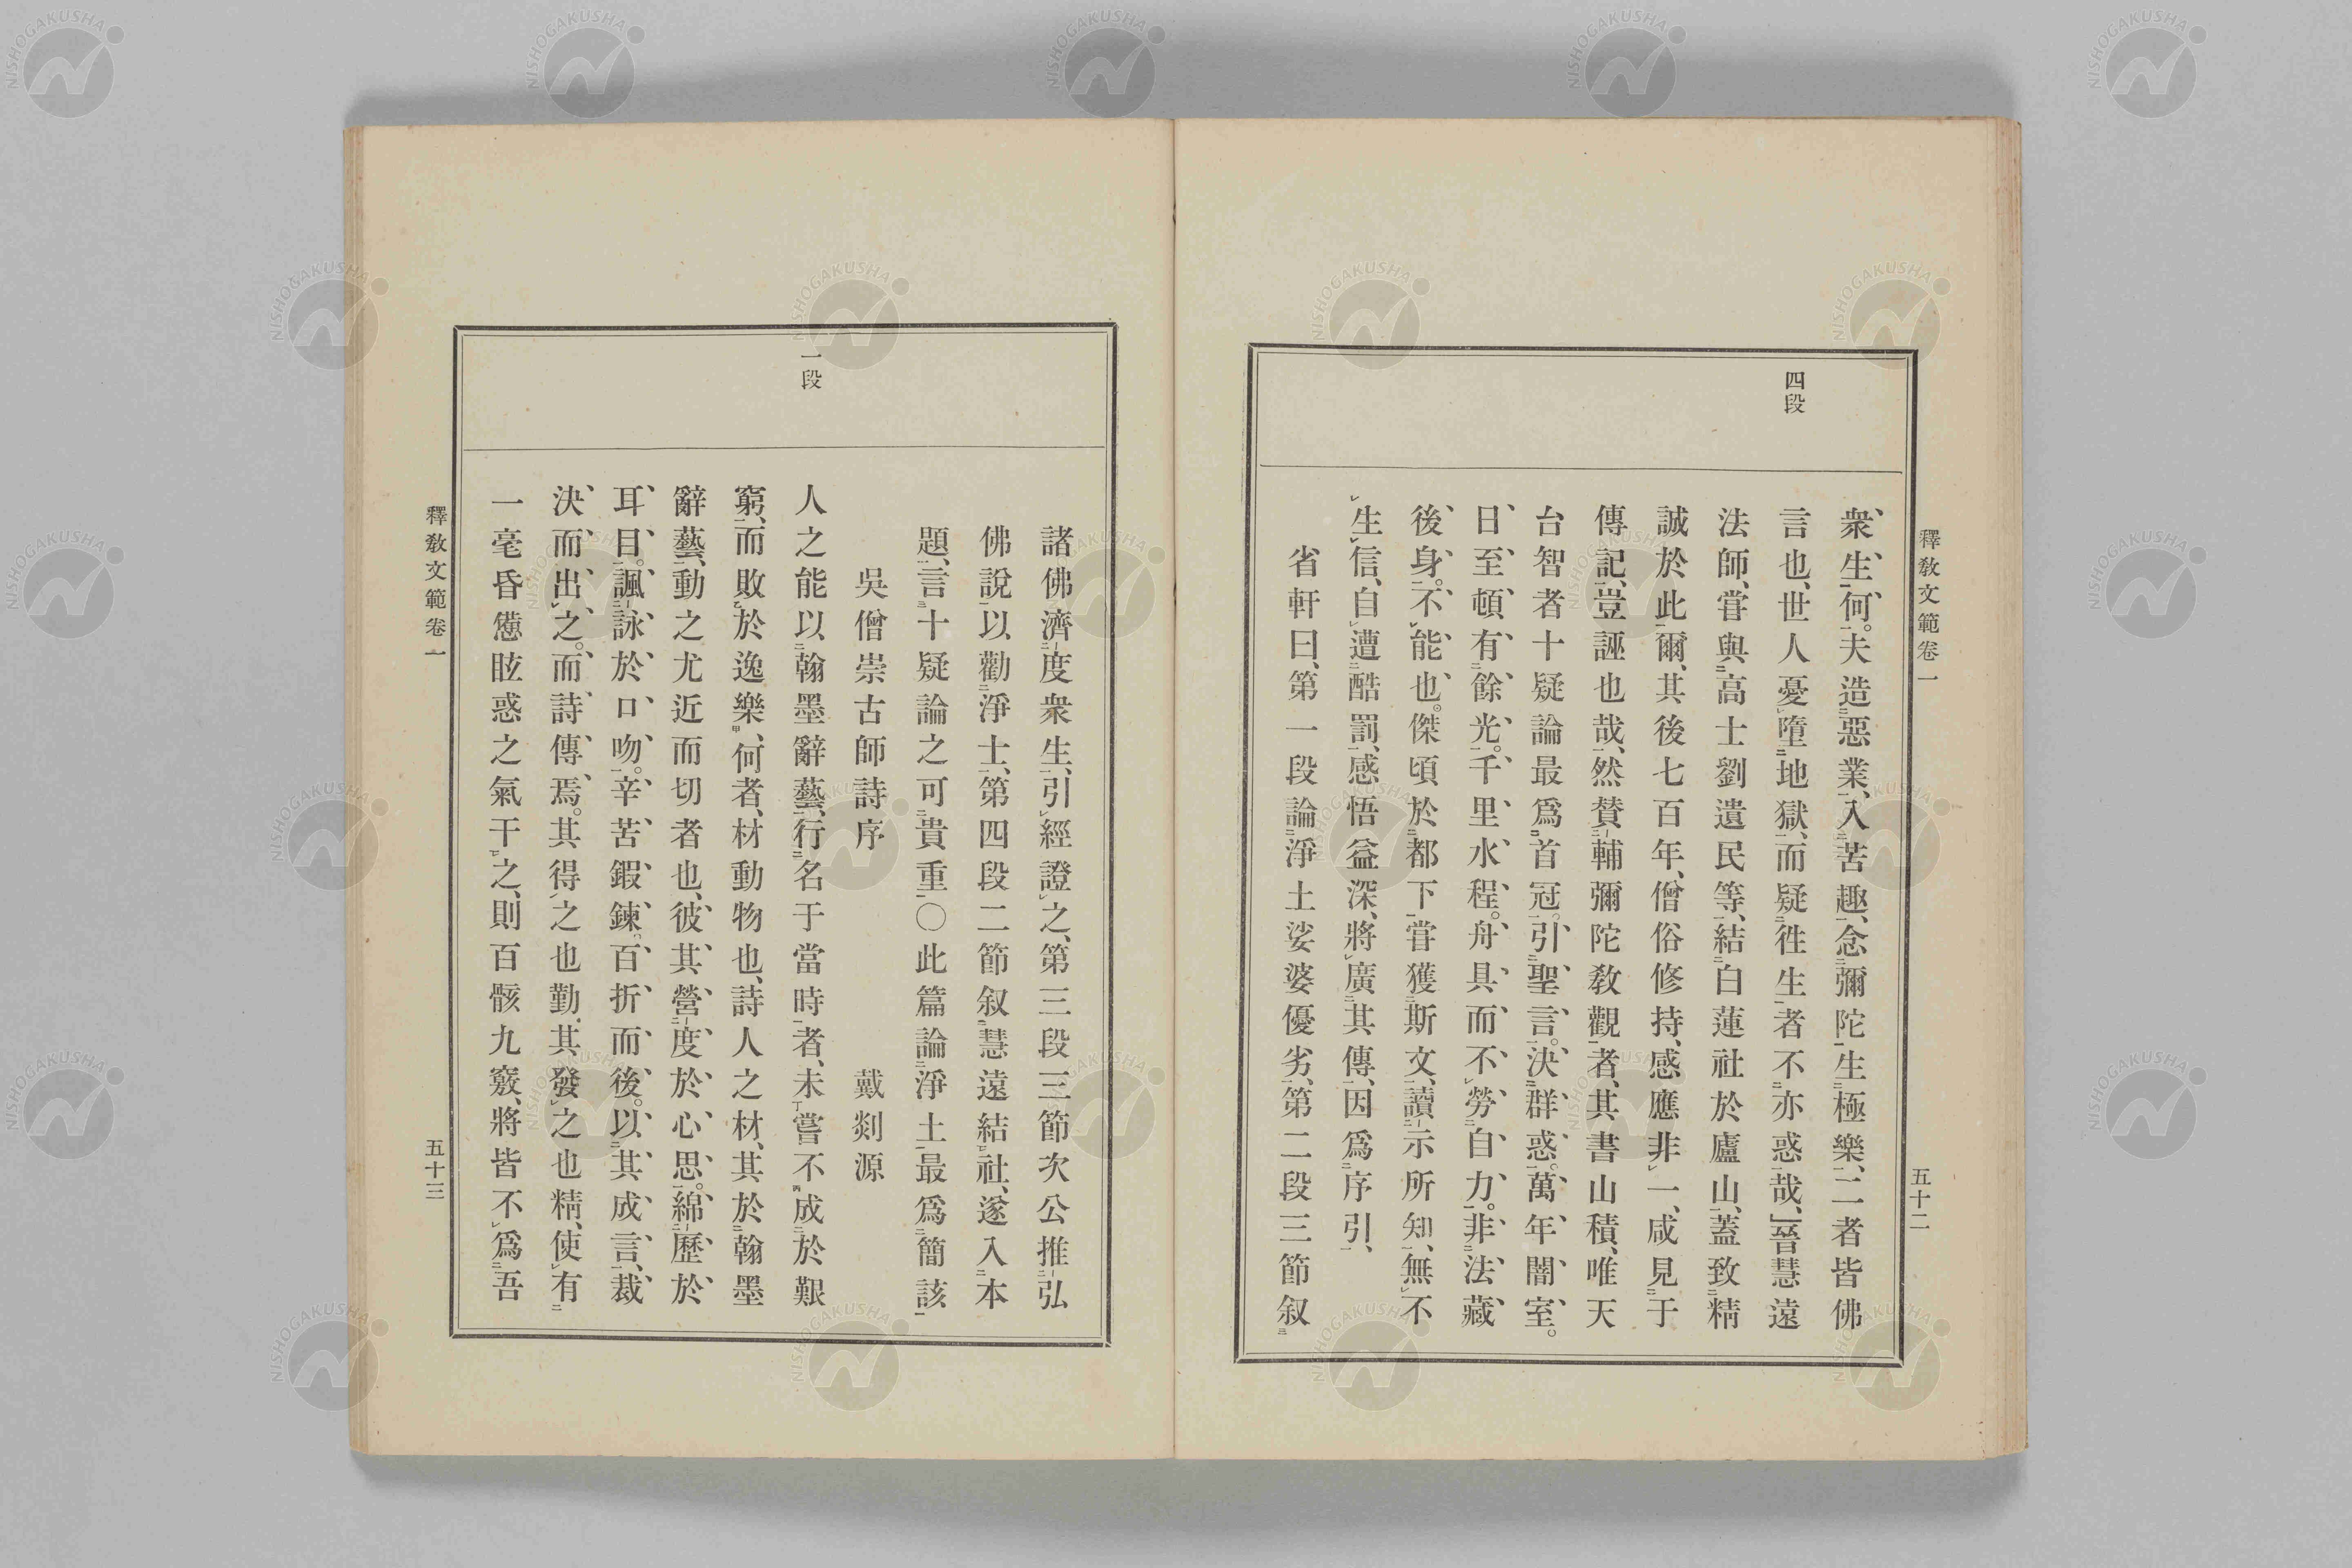 釋教文範卷一
五十二
四段
衆生何。夫造惡業、入苦趣、念彌陀生極樂、二者皆佛
言也、世人憂墮地獄、而疑徃生者不亦惑哉、晉慧遠
法師、嘗與高士劉遺民等、結白蓮社於廬山、蓋致精
誠於此爾、其後七百年、僧俗修持、感應非一、咸見于
傳記、豈誣也哉、然贊輔彌陀教觀者、其書山積、唯天
台智者十疑論最爲首冠。引聖言。決群惑。萬年闇室。
日至頓有餘光。千里水程。舟具而不勞自力。非法藏
後身。不能也。傑頃於都下嘗獲斯文、讀示所知、無不
生信、自遭酷罰、感悟益深、將廣其傳、因爲序引、
省軒曰、第一段論淨土娑婆優劣、第二段三節叙
諸佛濟度衆生、引經證之、第三段三節次公推弘
佛說以勸淨士、第四段二節叙慧遠結社、遂入本
題、言十疑論之可貴重〇此篇論淨土最爲簡該
吳僧崇古師詩序 戴剡源
一段
人之能以翰墨辭藝、行名于當時者、未嘗不成於艱
窮、而敗於逸樂、何者、材動物也、詩人之材、其於翰墨
辭藝、動之尤近而切者也、彼其營度於心思。綿歷於
耳目。諷詠於口吻。辛苦鍜鍊。百折而後。以其成言、裁
決而出之。而詩傳焉。其得之也勤、其發之也精、使有
一毫昏憊眩惑之氣干之、則百骸九竅、將皆不爲吾
釋教文範卷一
五十三